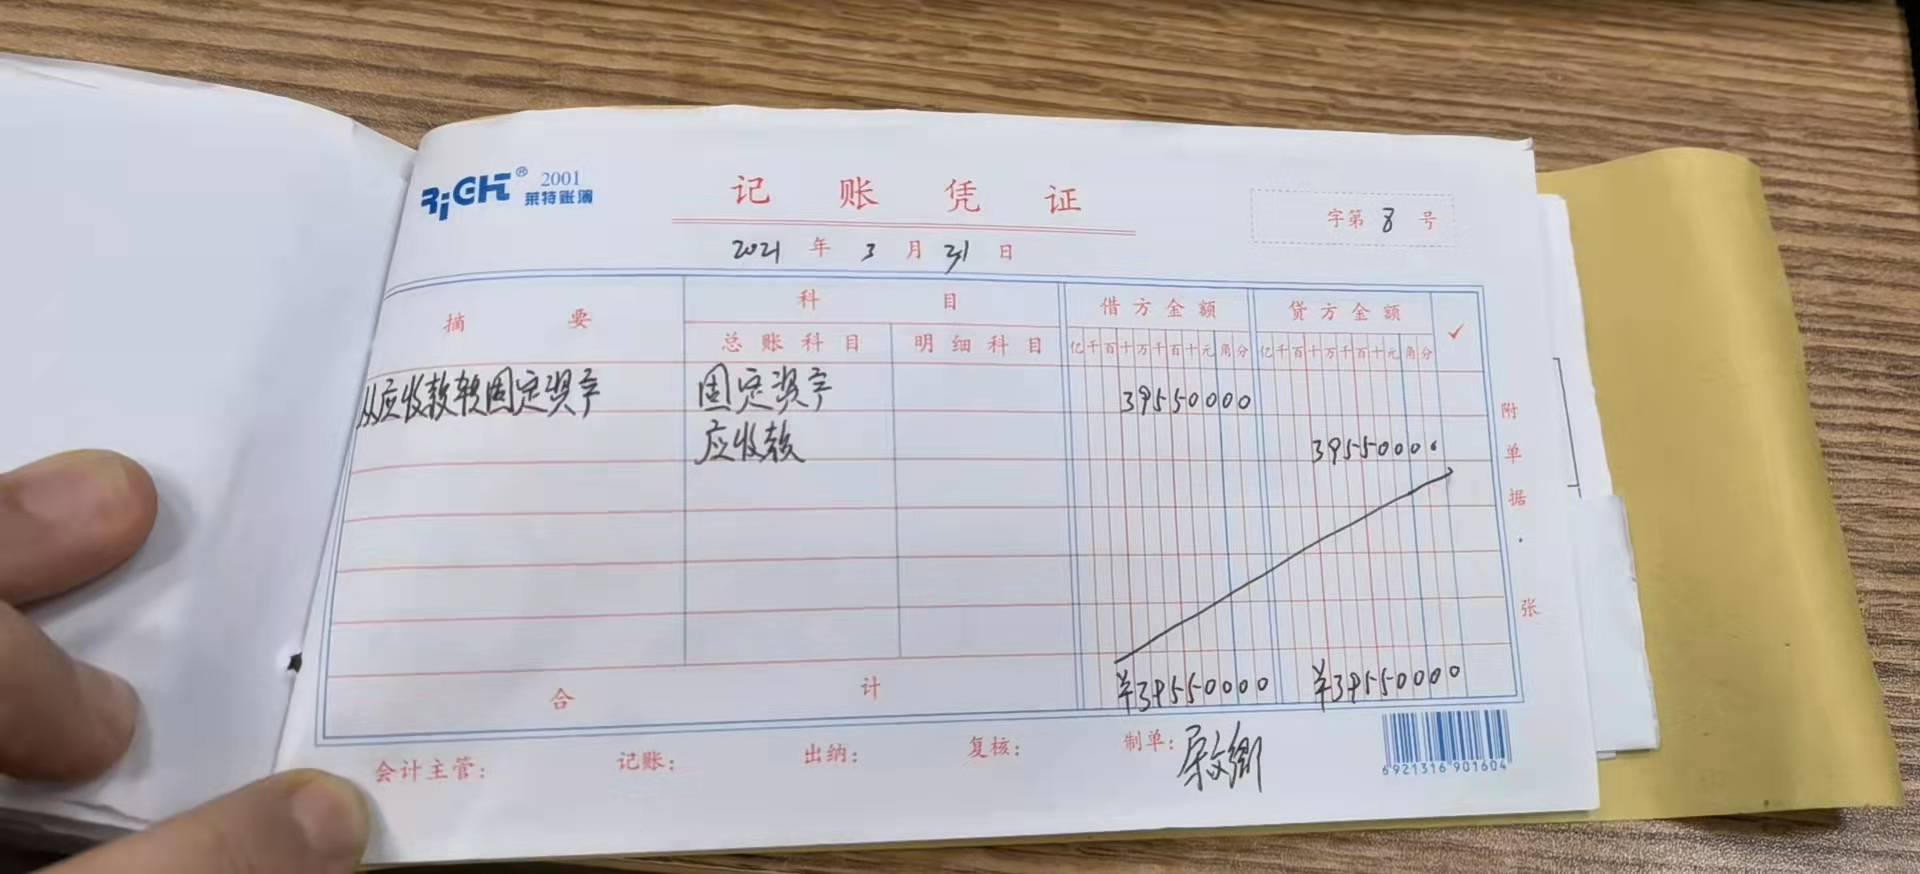 RiGHT® 2001
莱特账簿
记账凭证
字第 8 号
2021 年 3 月 31 日
摘要 科目 借方金额 贷方金额 ✓
总账科目 明细科目 亿千百十万千百十元角分 亿千百十万千百十元角分
从应收款转固定资产 固定资产 39550000
应收款 39550000
附单据 张
合计 ¥39550000 ¥39550000
会计主管: 记账: 出纳: 复核: 制单:
6921316901604